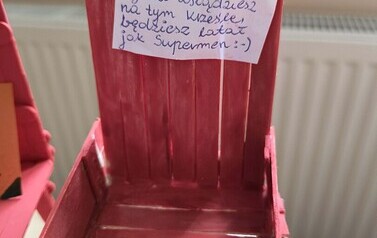 usiądziesz
na tym krześle,
będziesz latał
jak Supermen :-)